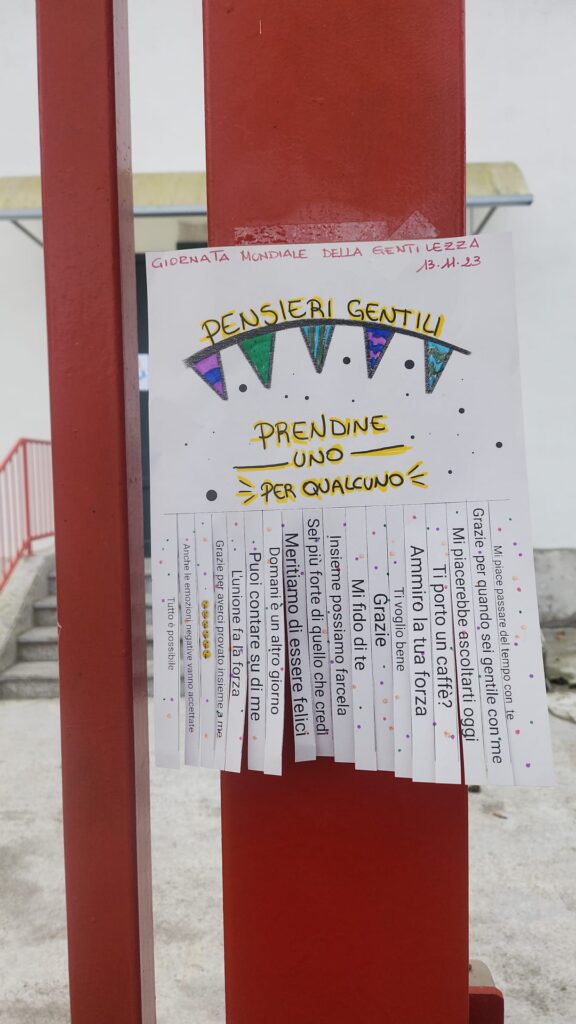 GIORNATA MONDIALE DELLA GENTILEZZA
13.11.23
PENSIERI GENTILI
PRENDINE
UNO
PER QUALCUNO
Tutto è possibile
Anche le emozioni negative vanno accettate
😀😀😀😀😀😀
Grazie per averci provato insieme a me
L'unione fa la forza
Puoi contare su di me
Domani è un altro giorno
Meritiamo di essere felici
Sei più forte di quello che credi
Insieme possiamo farcela
Mi fido di te
Grazie
Ti voglio bene
Ammiro la tua forza
Ti porto un caffè?
Mi piacerebbe ascoltarti oggi
Grazie per quando sei gentile con me
Mi piace passare del tempo con te